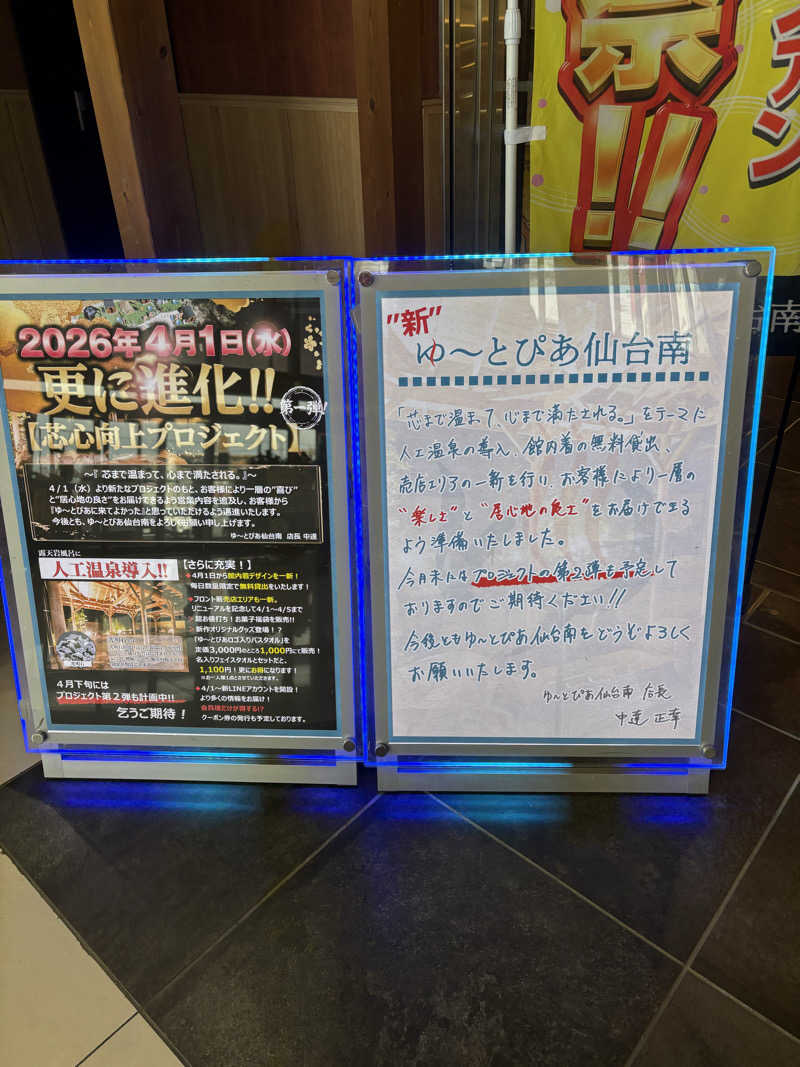 2026年4月1日(水)
更に進化!!
第一弾!
【芯心向上プロジェクト】
～『 芯まで温まって、心まで満たされる。』～
4/1（水）より新たなプロジェクトのもと、お客様により一層の"喜び"
と"居心地の良さ"をお届けできるよう営業内容を追及し、お客様から
『ゆ～ぴあに来てよかった』と思っていただけるよう邁進いたします。
今後とも、ゆ～とぴあ仙台南をよろしくお願い申し上げます。
ゆ～とぴあ仙台南 店長 中達
露天岩風呂に
人工温泉導入!!
4月下旬には
プロジェクト第2弾も計画中!!
乞うご期待！
【さらに充実！】
◆ 4月1日から館内着デザインを一新！
毎日数量限定で無料貸出をいたします！
◆ フロント販売店エリアも一新。
リニューアルを記念して4/1～4/5まで
超お値打ち！お菓子福袋を販売!!
新作オリジナルグッズ登場！？
「ゆ～とぴあロゴ入りバスタオル」を
定価3,000円のところ1,000円にて販売！
名入りフェイスタオルとセットだと、
1,100円！更にお得になります！
※お一人様1点とさせていただきます。
◆ 4/1～新LINEアカウントを開設！
より多くの情報をお届け！
会員様だけが得する!?
クーポン券の発行も予定しております。
"新"
ゆ～とぴあ仙台南
「芯まで温まって、心まで満たされる。」をテーマに
人工温泉の導入、館内着の無料貸出、
売店エリアの一新を行り、お客様により一層の
"楽しさ"と"居心地の良さ"をお届けできる
よう準備いたしました。
今月末には プロジェクトの第2弾も予定して
おりますのでご期待ください!!
今後ともゆ～とぴあ仙台南をどうぞよろしく
お願いいたします。
ゆ～とぴあ仙台南 店長
中達 正幸
祭!!
台南